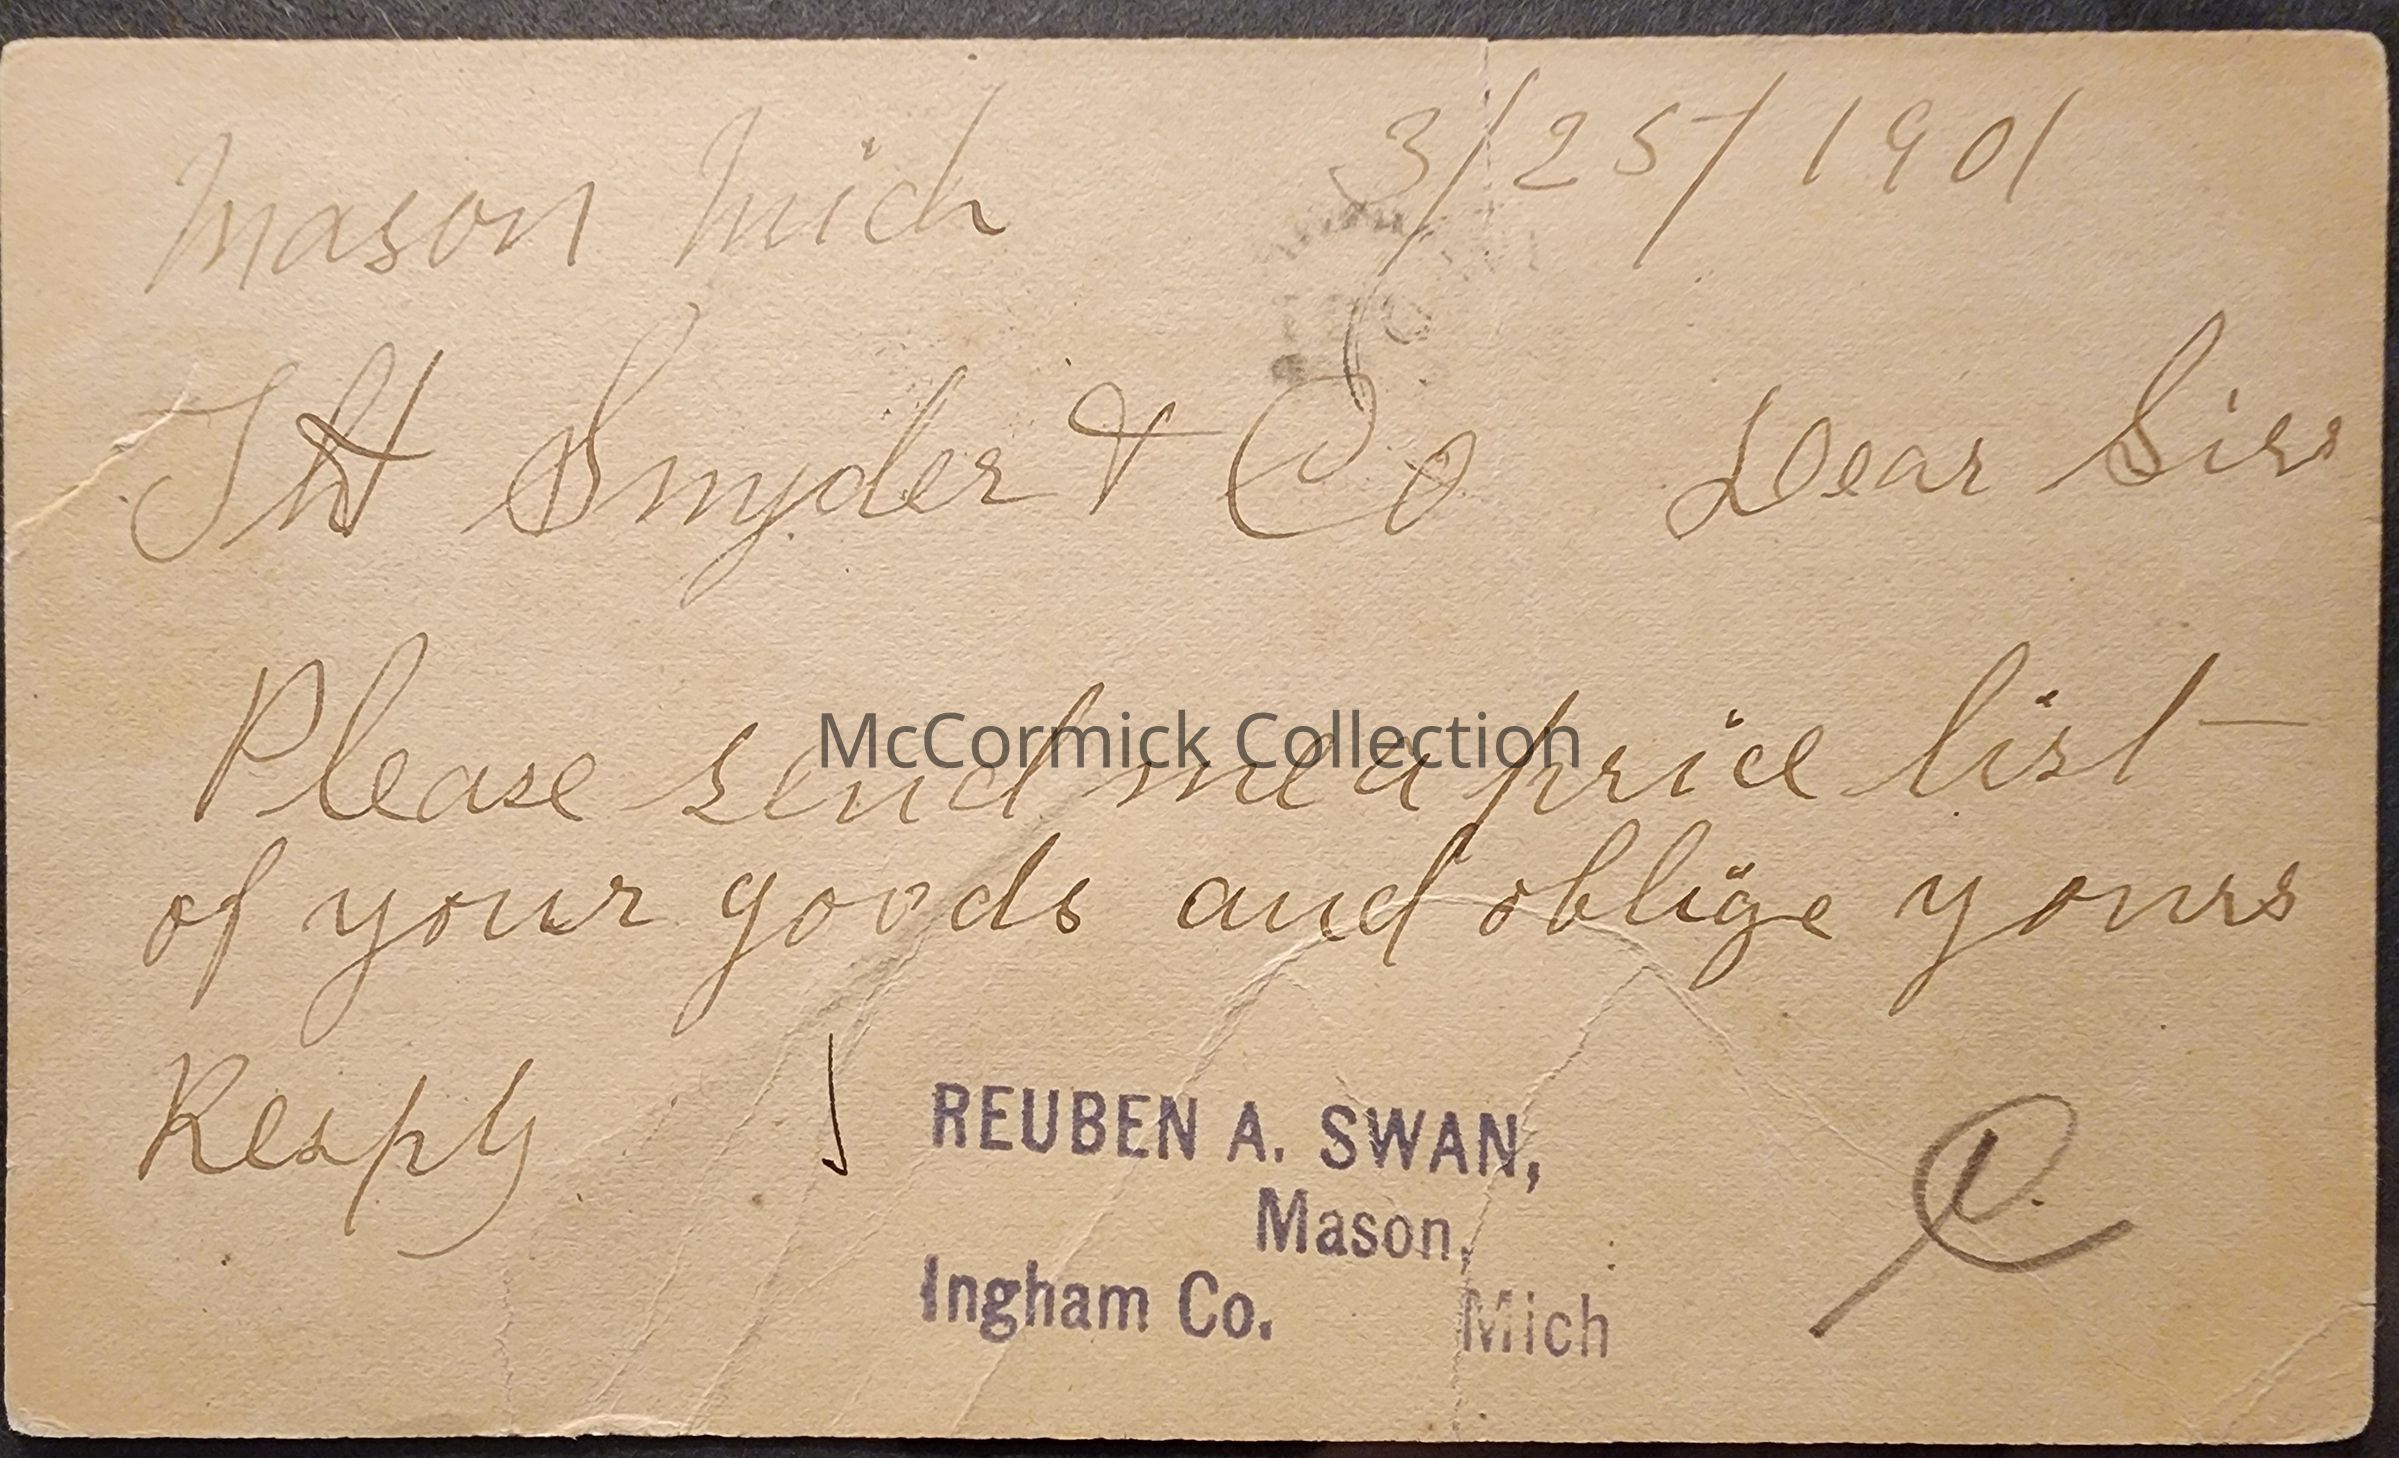 Mason Mich 3/25/1901
T H Snyder & Co Dear Sirs
Please send me a price list
McCormick Collection
of your goods and oblige yours
Resply
REUBEN A. SWAN,
Mason,
Ingham Co. Mich